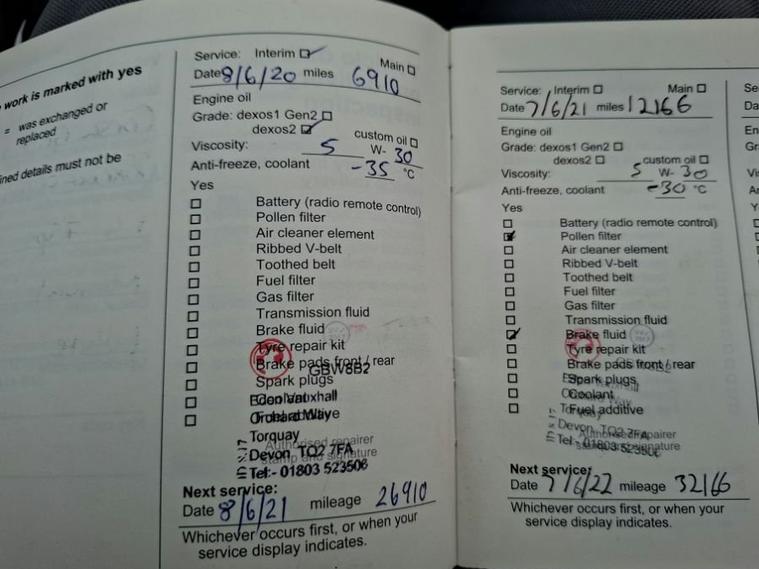 work is marked with yes
= was exchanged or
replaced
ined details must not be
Service: Interim Main
Date 8/6/20 miles 6910
Engine oil
Grade: dexos1 Gen2
dexos2 custom oil
Viscosity: 5 W- 30
Anti-freeze, coolant -35 °C
Yes
Battery (radio remote control)
Pollen filter
Air cleaner element
Ribbed V-belt
Toothed belt
Fuel filter
Gas filter
Transmission fluid
Brake fluid
Tyre repair kit
Brake pads front / rear
GBW8B2
Spark plugs
Eden Vauxhall
Coolant
Orchard Way
Fuel additive
Torquay
Authorised repairer
Devon TQ2 7FA
stamp and signature
Tel:- 01803 523506
Next service:
Date 8/6/21 mileage 26910
Whichever occurs first, or when your
service display indicates.
Service: Interim Main
Date 7/6/21 miles 12166
Engine oil
Grade: dexos1 Gen2
dexos2 custom oil
Viscosity: 5 W- 30
Anti-freeze, coolant -30 °C
Yes
Battery (radio remote control)
Pollen filter
Air cleaner element
Ribbed V-belt
Toothed belt
Fuel filter
Gas filter
Transmission fluid
Brake fluid
Tyre repair kit
Brake pads front / rear
Spark plugs
Coolant
Fuel additive
Devon TQ2 7FA
Authorised repairer
Tel:- 01803 523506
Next service:
Date 7/6/22 mileage 32166
Whichever occurs first, or when your
service display indicates.
Se
Da
En
Gr